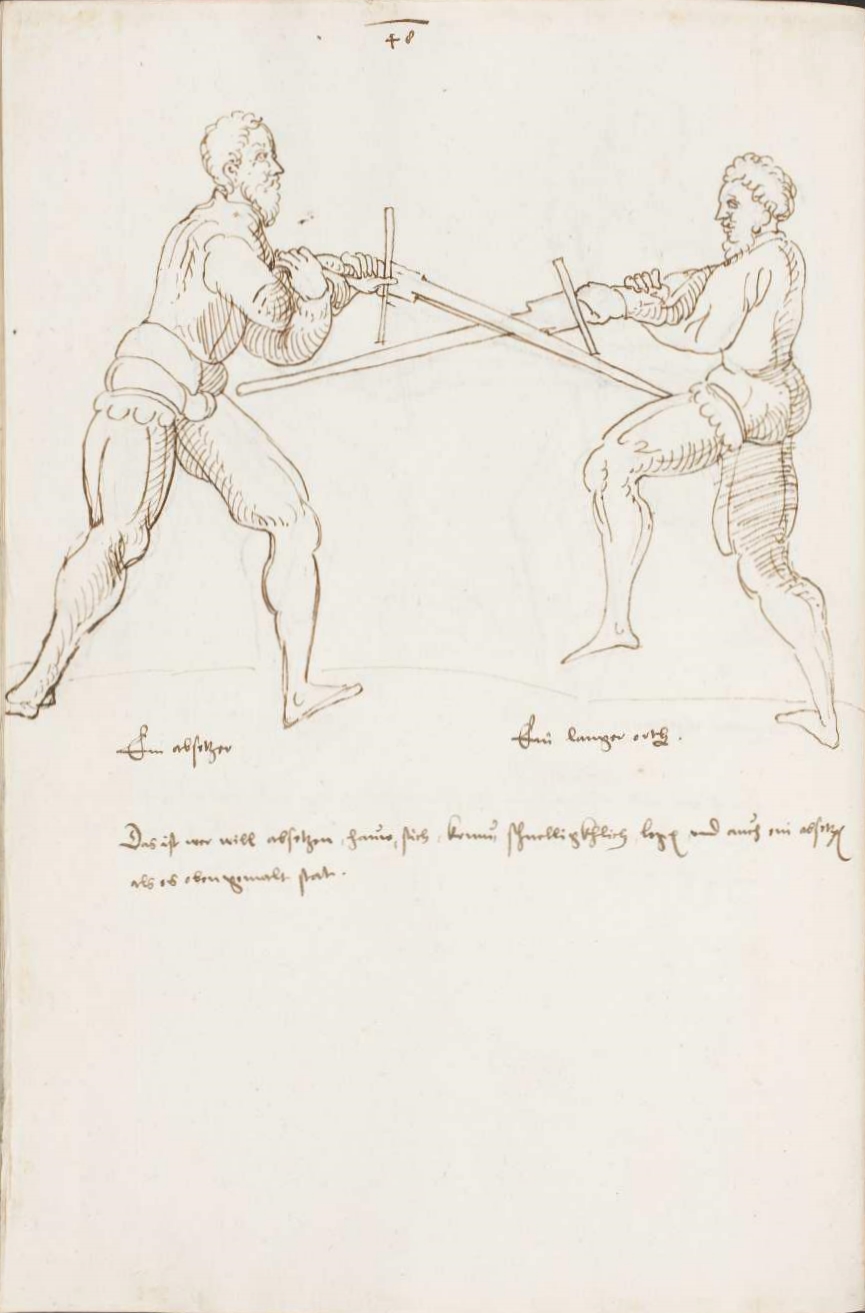 48
Ein absetzer
Ein langer orth.
Das ist wer will absetzen, hauw, stich, kemn schnelligkhlich letz und auch ein absetz
als es oben gemalt stat.